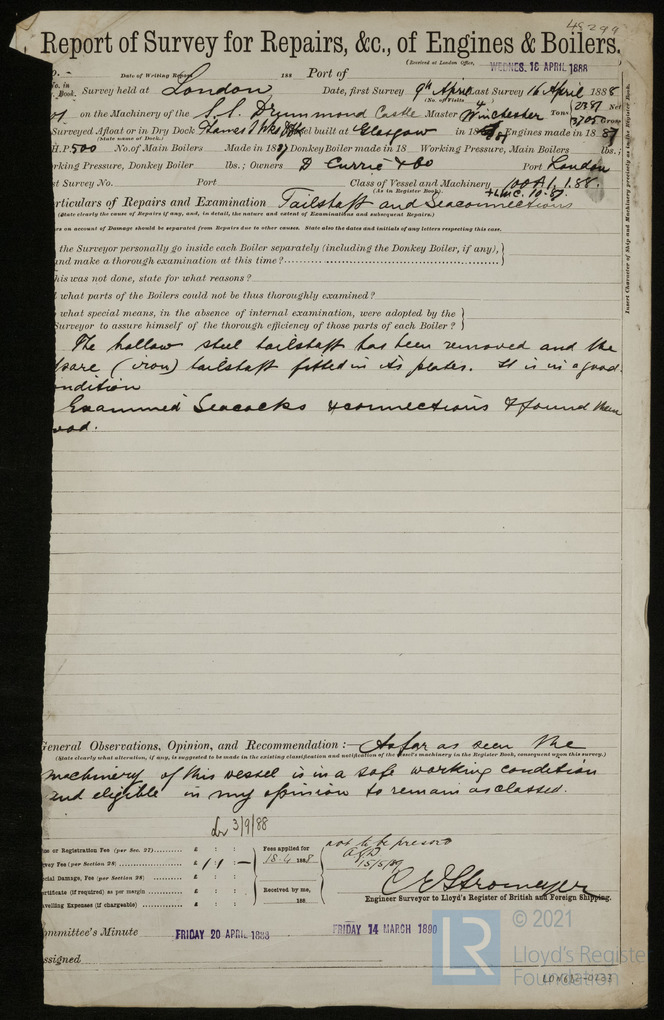 48299
Report of Survey for Repairs, &c., of Engines & Boilers.
(Received at London Office,
WEDNES. 18 APRIL 1888
Date of Writing Report 188 Port of
No. in
Book. Survey held at London Date, first Survey 9th April Last Survey 16 April 1888
(No. of Visits 4
on the Machinery of the S.S. Drummond Castle Master Winchester Tons 2387 Net
3705 Gross
Surveyed Afloat or in Dry Dock built at Glasgow in 18 Engines made in 18 87
(State name of Dock.)
H.P. 500 No. of Main Boilers Made in 18 Donkey Boiler made in 18 Working Pressure, Main Boilers lbs.;
rking Pressure, Donkey Boiler lbs.; Owners D Currie & Co Port London
st Survey No. Port Class of Vessel and Machinery 100A1, 1.88.
(As in Register Book). +LMC. 10.87.
rticulars of Repairs and Examination Tailshaft and Seaconnections
(State clearly the cause of Repairs if any, and, in detail, the nature and extent of Examinations and subsequent Repairs.)
rs on account of Damage should be separated from Repairs due to other causes. State also the dates and initials of any letters respecting this case.
the Surveyor personally go inside each Boiler separately (including the Donkey Boiler, if any),
and make a thorough examination at this time?
his was not done, state for what reasons?
what parts of the Boilers could not be thoroughly examined?
what special means, in the absence of internal examination, were adopted by the
Surveyor to assure himself of the thorough efficiency of those parts of each Boiler?
The hollow steel tailshaft has been removed and the
spare (iron) tailshaft fitted in its place. It is in a good
ondition
Examined Seacocks & connections & found them
good.
General Observations, Opinion, and Recommendation :— As far as seen the
(State clearly what alteration, if any, is suggested to be made in the existing classification and notification of the vessel's machinery in the Register Book, consequent upon this survey.)
machinery of this vessel is in a safe working condition
and eligible in my opinion to remain as classed.
3/9/88
ue or Registration Fee (per Sec. 27) £ : :
rvey Fee (per Section 28) £ 1 : 1 : —
ecial Damage, Fee (per Section 28) £ : :
ertificate (if required) as per margin £ : :
avelling Expenses (if chargeable) £ : :
Fees applied for
18.4 1888
Received by me,
188
not to be pressed
15/5/89
C E Stromeyer
Engineer Surveyor to Lloyd's Register of British and Foreign Shipping.
ommittee's Minute FRIDAY 20 APRIL 1888 FRIDAY 14 MARCH 1890
ssigned
Insert Character of Ship and Machinery precisely as in the Register Book.
LR
© 2021
Lloyd's Register
Foundation